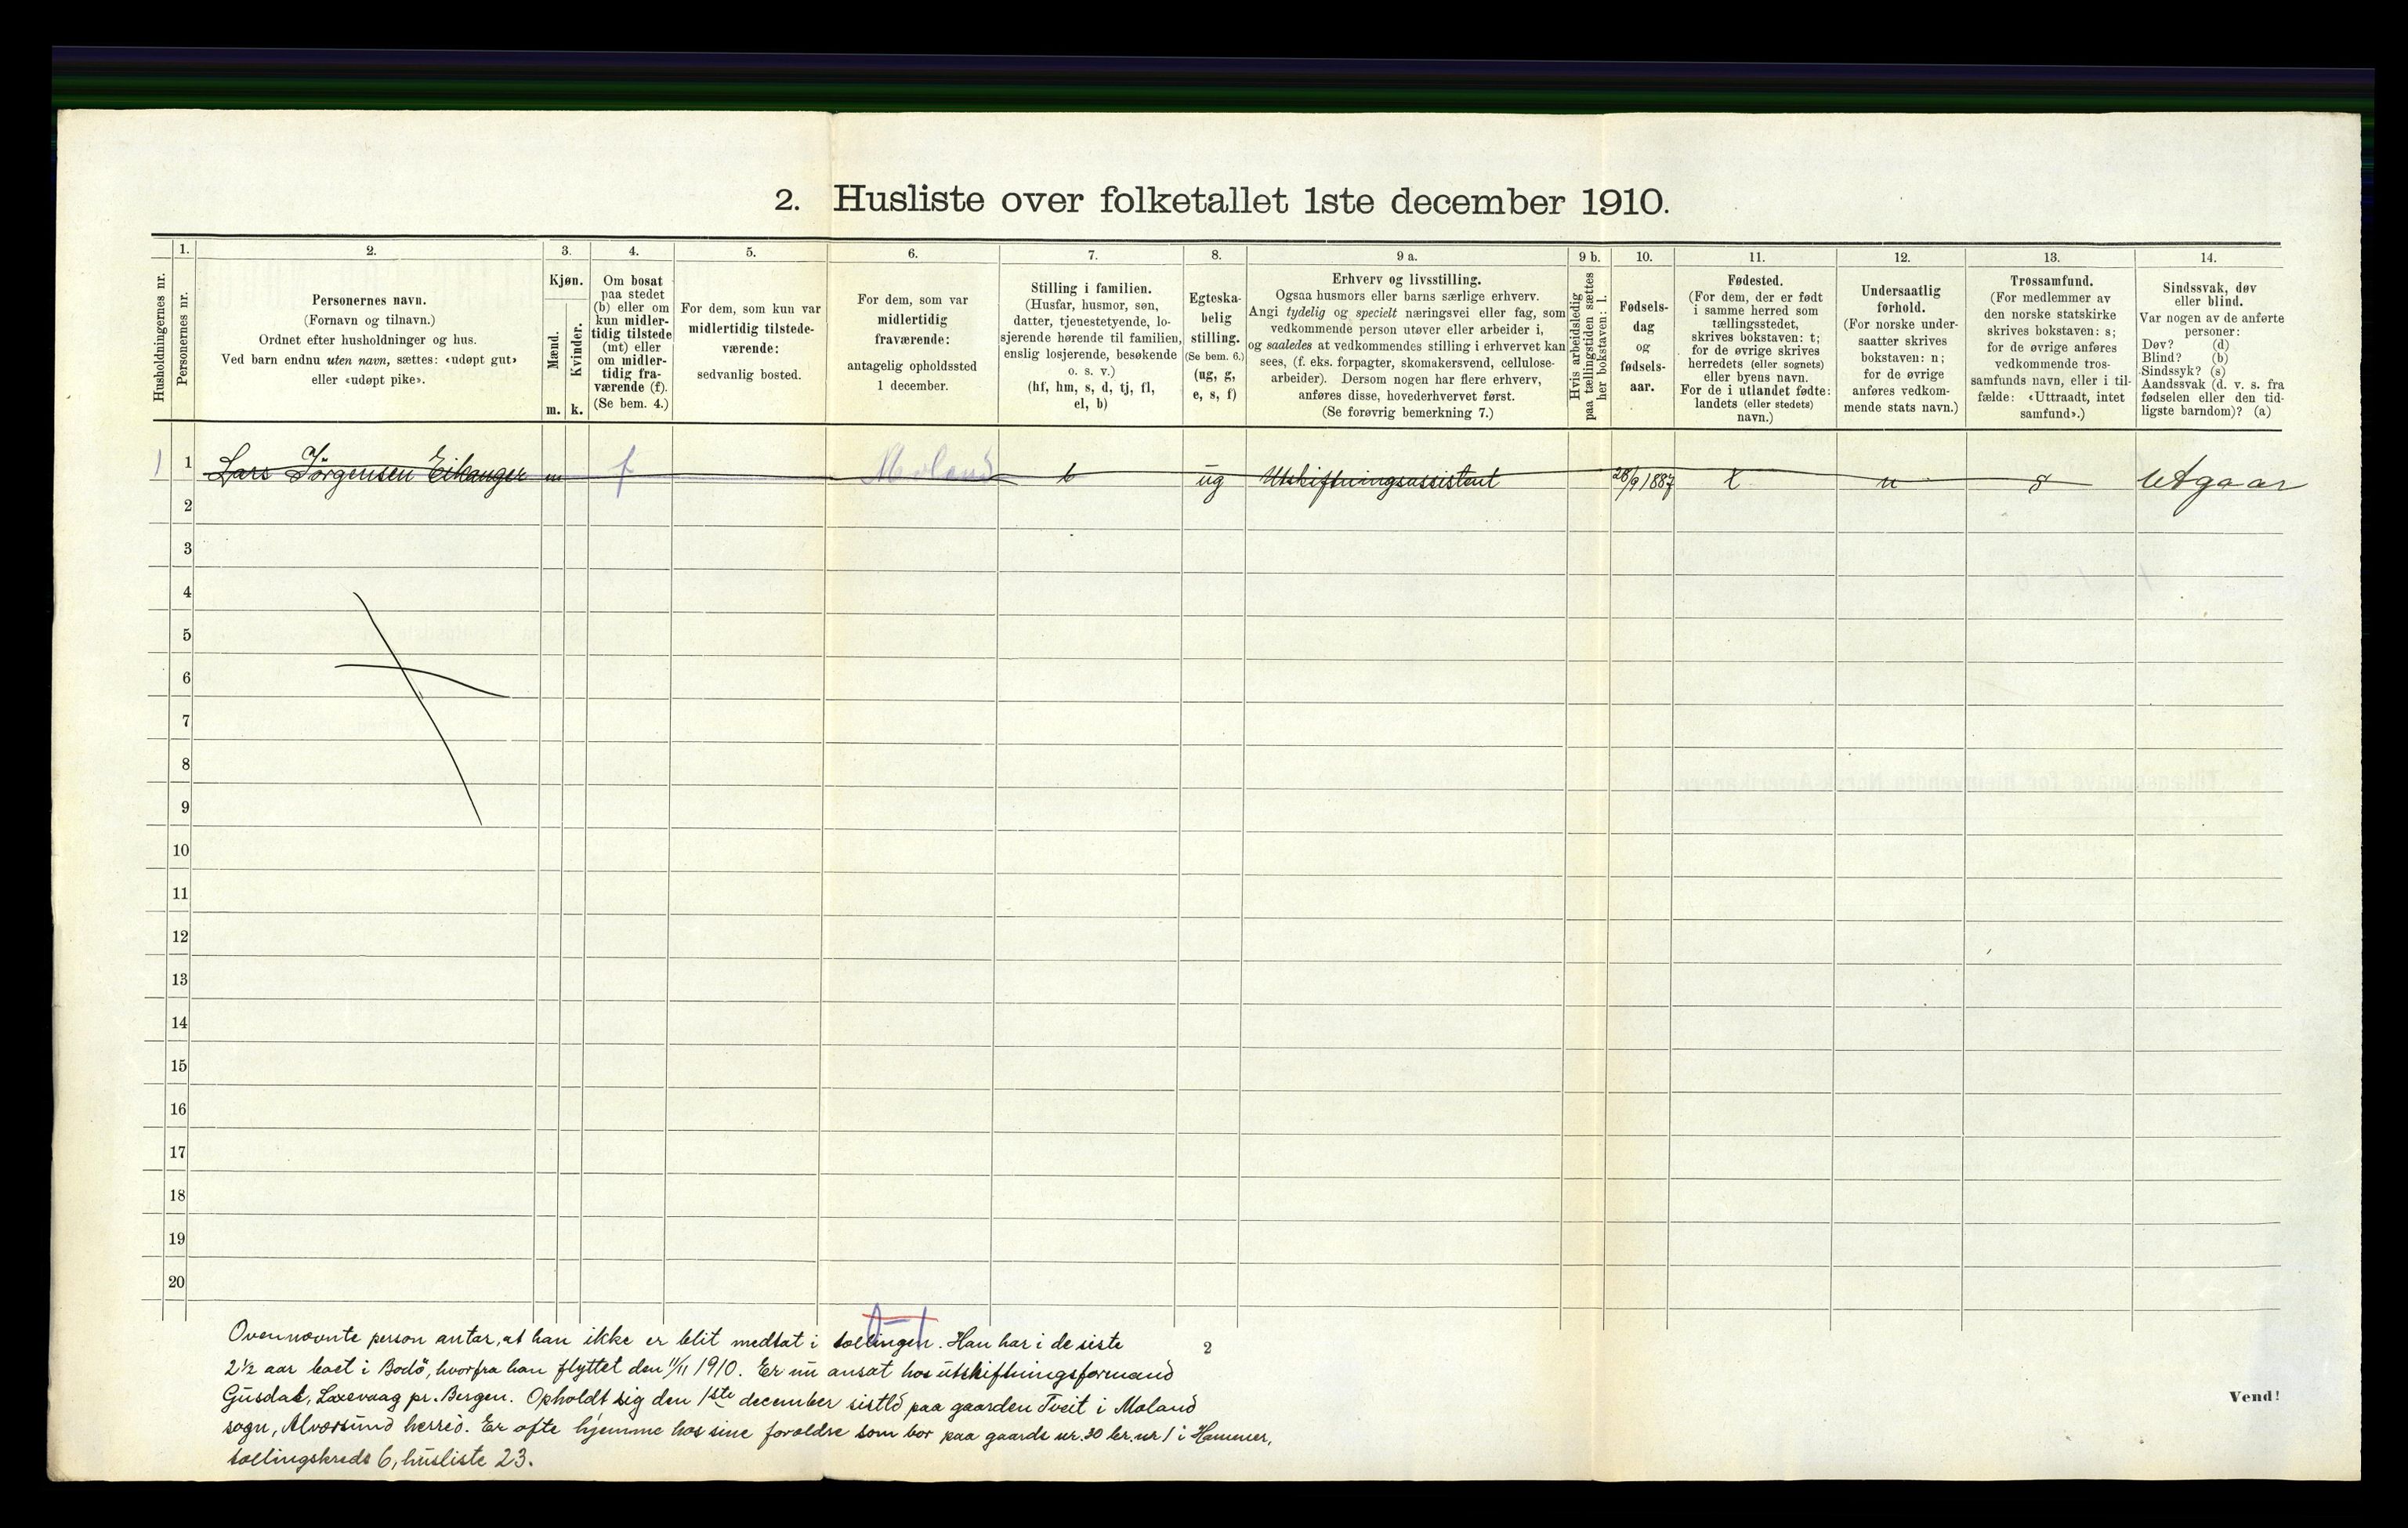 2. Husliste over folketallet 1ste december 1910.
1. 2. 3. 4. 5. 6. 7. 8. 9 a. 9 b. 10. 11. 12. 13. 14.
Husholdningernes nr.
Personernes nr.
Personernes navn.
(Fornavn og tilnavn.)
Ordnet efter husholdninger og hus.
Ved barn endnu uten navn, sættes: «udøpt gut»
eller «udøpt pike».
Kjøn.
Mænd.
Kvinder.
m. k.
Om bosat
paa stedet
(b) eller om
kun midler-
tidig tilstede
(mt) eller
om midler-
tidig fra-
værende (f).
(Se bem. 4.)
For dem, som kun var
midlertidig tilstede-
værende:
sedvanlig bosted.
For dem, som var
midlertidig
fraværende:
antagelig opholdssted
1 december.
Stilling i familien.
(Husfar, husmor, søn,
datter, tjenestetyende, lo-
sjerende hørende til familien,
enslig losjerende, besøkende
o. s. v.)
(hf, hm, s, d, tj, fl,
el, b)
Egteska-
belig
stilling.
(Se bem. 6.)
(ug, g,
e, s, f)
Erhverv og livsstilling.
Ogsaa husmors eller barns særlige erhverv.
Angi tydelig og specielt næringsvei eller fag, som
vedkommende person utøver eller arbeider i,
og saaledes at vedkommendes stilling i erhvervet kan
sees, (f. eks. forpagter, skomakersvend, cellulose-
arbeider). Dersom nogen har flere erhverv,
anføres disse, hovederhvervet først.
(Se forøvrig bemerkning 7.)
Hvis arbeidsledig
paa tællingstiden sættes
her bokstaven: l.
Fødsels-
dag
og
fødsels-
aar.
Fødested.
(For dem, der er født
i samme herred som
tællingsstedet,
skrives bokstaven: t;
for de øvrige skrives
herredets (eller sognets)
eller byens navn.
For de i utlandet fødte:
landets (eller stedets)
navn.)
Undersaatlig
forhold.
(For norske under-
saatter skrives
bokstaven: n;
for de øvrige
anføres vedkom-
mende stats navn.)
Trossamfund.
(For medlemmer av
den norske statskirke
skrives bokstaven: s;
for de øvrige anføres
vedkommende tros-
samfunds navn, eller i til-
fælde: «Uttraadt, intet
samfund».)
Sindssvak, døv
eller blind.
Var nogen av de anførte
personer:
Døv? (d)
Blind? (b)
Sindssyk? (s)
Aandssvak (d. v. s. fra
fødselen eller den tid-
ligste barndom)? (a)
1 1 Lars Jørgensen Eikanger m f Moland b ug Utskiftningsassistent 28/9 1887 t n s Utgaar
2
3
4
5
6
7
8
9
10
11
12
13
14
15
16
17
18
19
20
Ovennævnte person antar, at han ikke er blit medtat i tællingen. Han har i de siste
2½ aar boet i Bodö, hvorfra han flyttet den 11/11 1910. Er nu ansat hos utskiftningsformand
Gusdal, Laxevaag pr. Bergen. Opholdt sig den 1ste december sistld paa gaarden Tveit i Moland
sogn, Alversund herred. Er ofte hjemme hos sine forældre som bor paa gaards nr. 30 br. nr 1 i Hammer,
tællingskreds 6, husliste 23.
2
Vend!